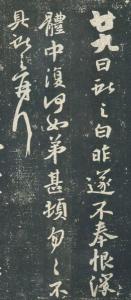 廿九日獻之白昨遂不奉恨深
體中復何如弟甚頓匆々不
具獻之再拜